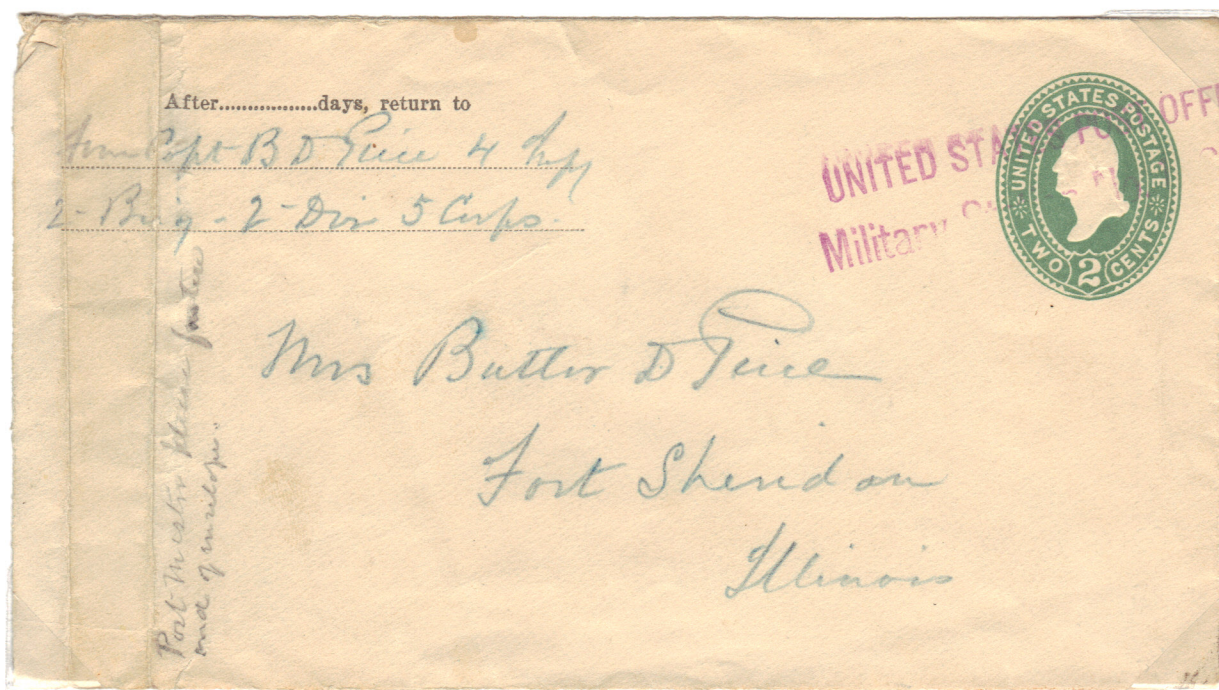 After................days, return to
From Capt B D Price 4 Inf
2 - Brig - 2 - Div 5 Corps.
UNITED STATES POST OFFI
Military
UNITED STATES POSTAGE
TWO 2 CENTS
Mrs Butler D Price
Fort Sheridan
Illinois
Post Master please fasten
end of envelope.